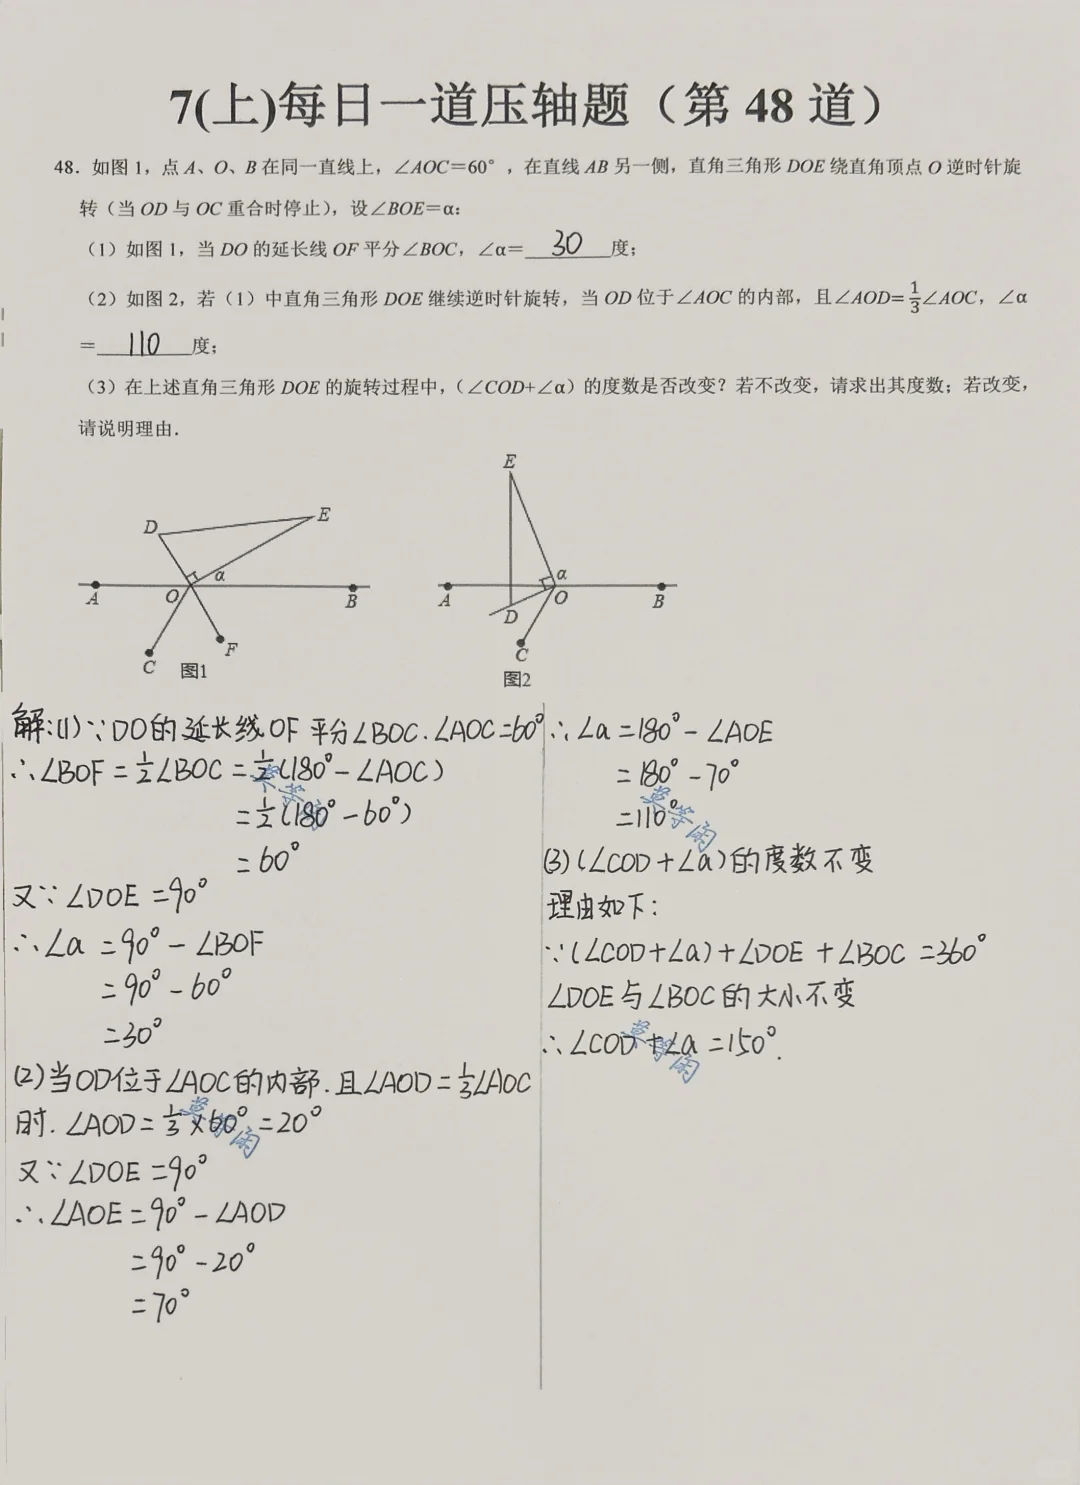 7(上)每日一道压轴题（第 48 道）
48．如图 1，点 A、O、B 在同一直线上，∠AOC＝60°，在直线 AB 另一侧，直角三角形 DOE 绕直角顶点 O 逆时针旋
转（当 OD 与 OC 重合时停止），设∠BOE＝α：
（1）如图 1，当 DO 的延长线 OF 平分∠BOC，∠α＝ 30 度；
（2）如图 2，若（1）中直角三角形 DOE 继续逆时针旋转，当 OD 位于∠AOC 的内部，且∠AOD=1/3∠AOC，∠α
＝ 110 度；
（3）在上述直角三角形 DOE 的旋转过程中，（∠COD+∠α）的度数是否改变？若不改变，请求出其度数；若改变，
请说明理由．
D E α A O B C F
图1
E α A O B D C
图2
解:(1)∵DO的延长线OF平分∠BOC.∠AOC=60°
∴∠BOF=1/2∠BOC=1/2(180°-∠AOC)
=1/2(180°-60°)
=60°
又∵∠DOE=90°
∴∠a=90°-∠BOF
=90°-60°
=30°
(2)当OD位于∠AOC的内部.且∠AOD=1/3∠AOC
时.∠AOD=1/3×60°=20°
又∵∠DOE=90°
∴∠AOE=90°-∠AOD
=90°-20°
=70°
∴∠a=180°-∠AOE
=180°-70°
=110°
(3)(∠COD+∠a)的度数不变
理由如下:
∵(∠COD+∠a)+∠DOE+∠BOC=360°
∠DOE与∠BOC的大小不变
∴∠COD+∠a=150°.
莫等闲
莫等闲
莫等闲
莫等闲